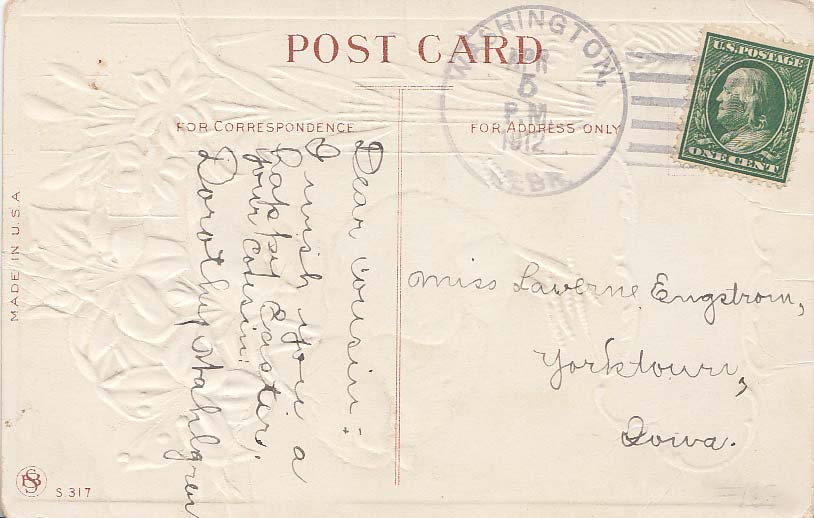 POST CARD
FOR CORRESPONDENCE
FOR ADDRESS ONLY
WASHINGTON,
APR
5
P.M.
1912
NEBR.
U.S. POSTAGE
ONE CENT
Dear cousin:
I wish you a
happy Easter.
your cousin:
Dorothy Stahlgren
Miss Laverne Engstrom,
Yorktown,
Iowa.
MADE IN U.S.A
S.317